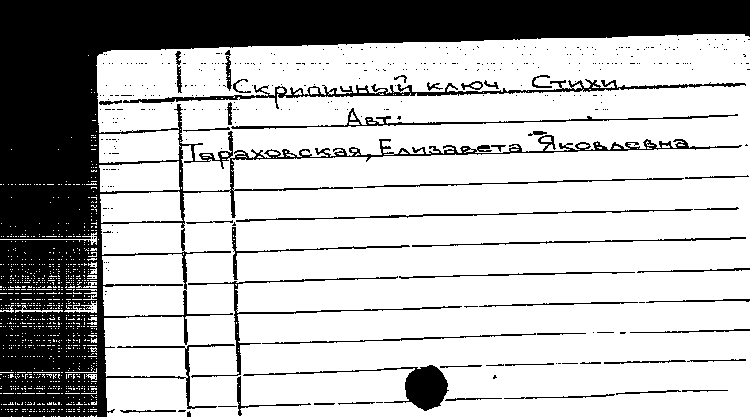 Скрипичный ключ. Стихи.
Авт.:
Тараховская, Елизавета Яковлевна.